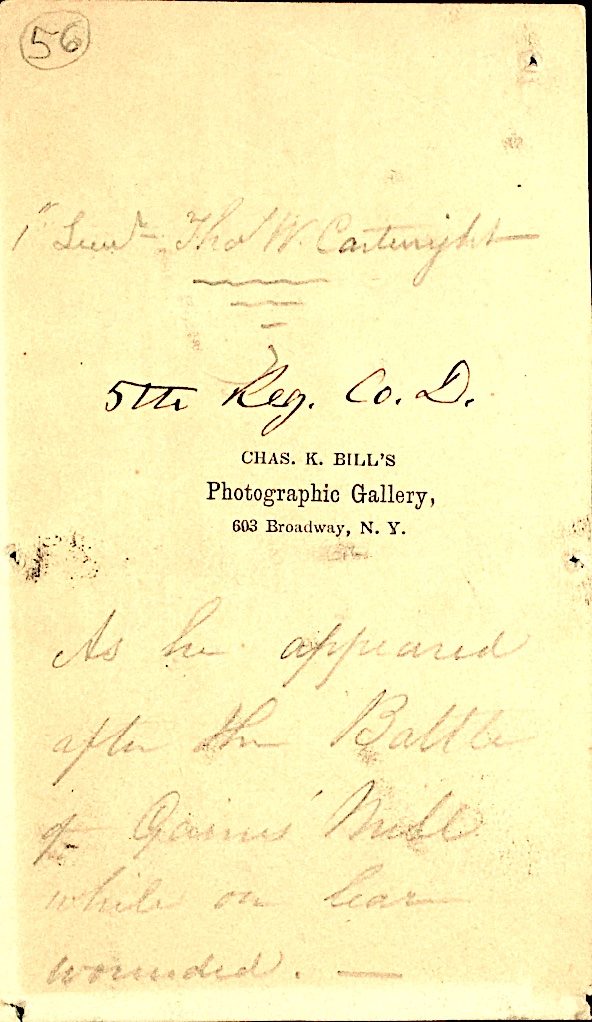 56
1st Lieut Thos W. Cartwright
5th Reg. Co. D.
CHAS. K. BILL'S
Photographic Gallery,
603 Broadway, N. Y.
As he appeared
after the Battle
of Gaines' Mill
while on leave
wounded. —